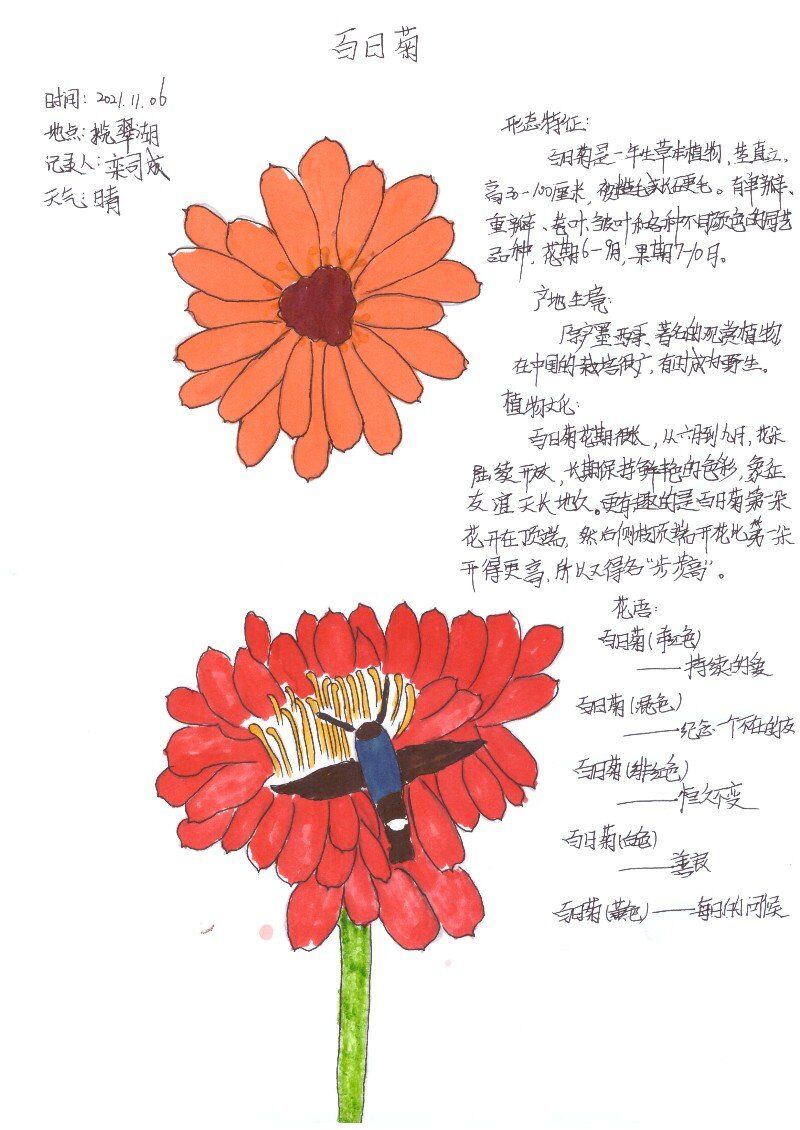 百日菊
时间：2021.11.06
地点：揽翠湖
记录人：栾司成
天气：晴
形态特征：
百日菊是一年生草本植物，茎直立，
高30-100厘米，被糙毛或长硬毛。有单瓣、
重瓣、卷叶、皱叶和各种不同颜色的园艺
品种，花期6-9月，果期7-10月。
产地生境：
原产墨西哥，著名的观赏植物
在中国的栽培很广，有时成为野生。
植物文化：
百日菊花期很长，从六月到九月，花朵
陆续开放，长期保持鲜艳的色彩，象征
友谊天长地久。更有趣的是百日菊第一朵
花开在顶端，然后侧枝顶端开花比第一朵
开得更高，所以又得名“步步高”。
花语：
百日菊（洋红色）
——持续的爱
百日菊（混色）
——纪念一个不在的友
百日菊（绯红色）
——恒久不变
百日菊（白色）
——善良
百日菊（黄色）——每日的问候